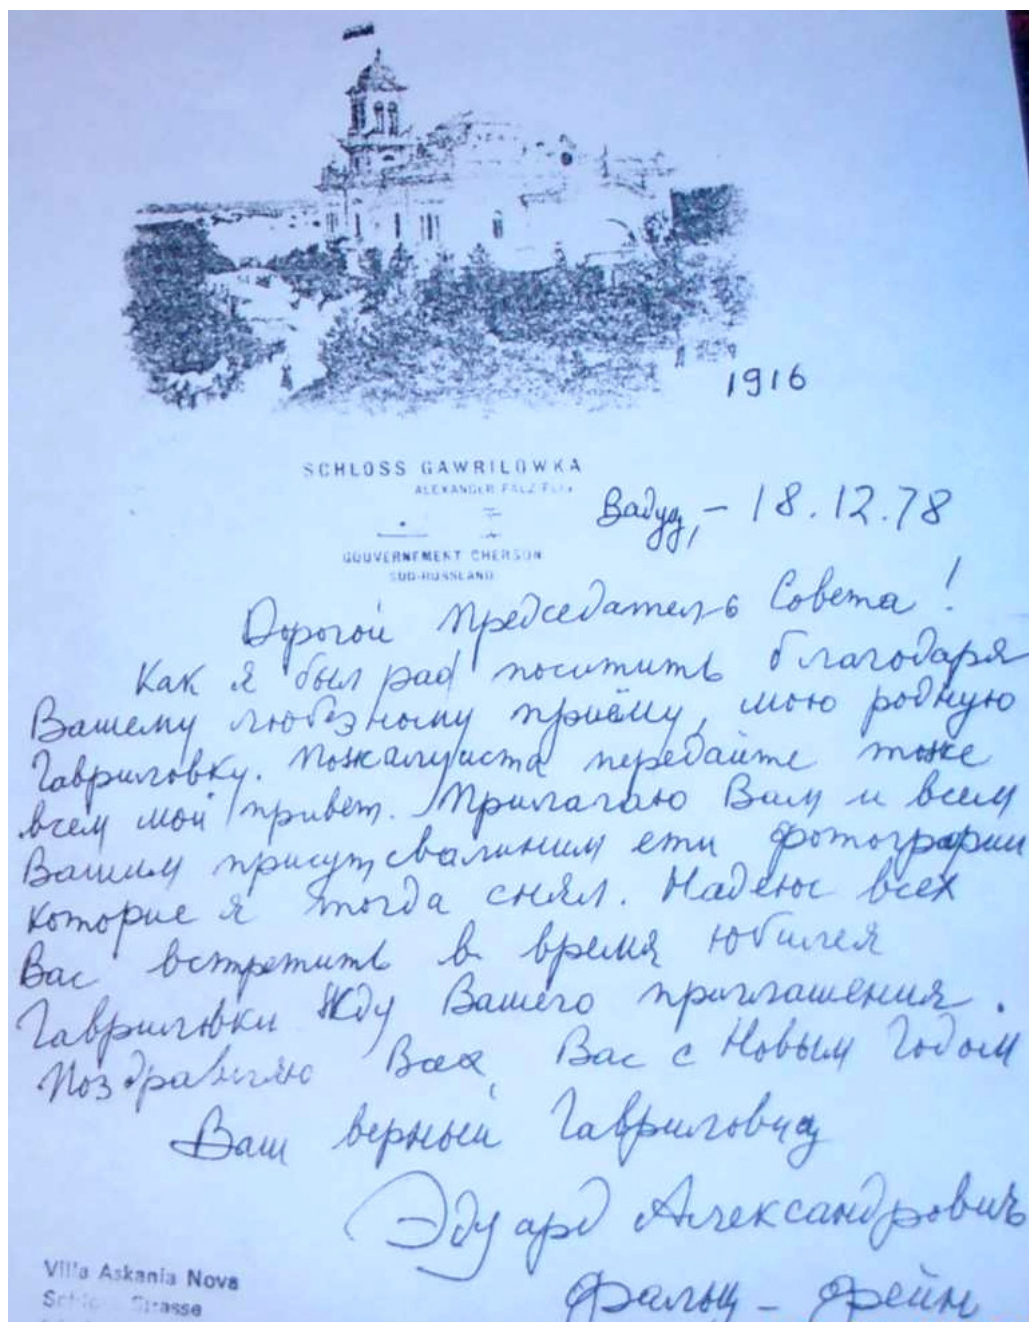 1916
SCHLOSS GAWRILOWKA
ALEXANDER FALZ-FEIN
Вадуц, – 18.12.78
GOUVERNEMENT CHERSON
SÜD-RUSSLAND
Дорогой Председатель Совета!
Как я был рад поситить благодаря
Вашему любезному приёму, мою родную
Гавриловку. Пожалуиста передайте тоже
всем мой привет. Прилагаю Вам и всем
Вашим ети фотографии
которие я тогда снял. Надеюс всех
Вас встретить в время юбилея
Гавриловки Жду Вашего приглашения.
Поздравляю Вас с Новым Годом
Ваш верный Гавриловец
Эдуард Александровичъ
Фальц – Фейн
Villa Askania Nova
Schloss Strasse